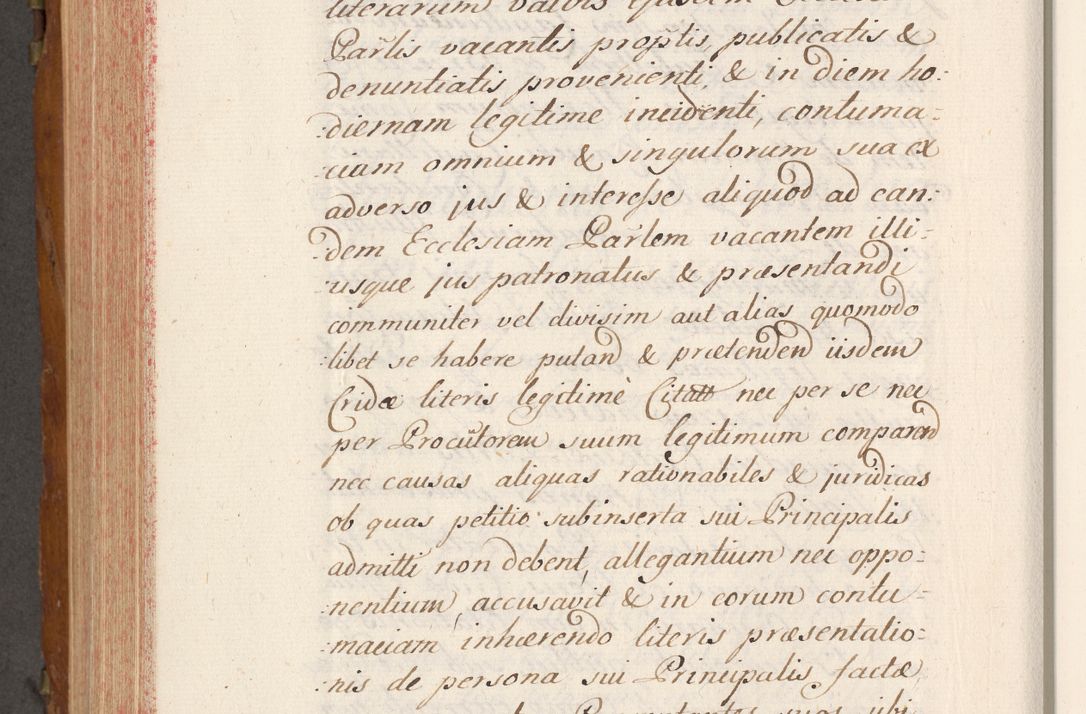 literarum valvis ejusdem Ecclesiæ
Par̃lis vacantis prop̃tis, publicatis &
denuntiatis provenienti, & in diem ho:
:diernam legitime incidenti, contuma:
:ciam omnium & singulorum sua ex
adverso jus & interesse aliquod ad ean:
:dem Ecclesiam Par̃lem vacantem illi:
:usque jus patronatus & præsentandi
communiter vel divisim aut alias quomodo
:libet se habere putand & prætenden iisdem
Cridæ literis legitimè Citatt nec per se nec
per Procũtorem suum legitimum comparend
nec causas aliquas rationabiles & juridicas
ob quas petitio subinserta sui Principalis
admitti non debent, allegantium nec oppo:
:nentium, accusavit & in eorum contu:
:maciam inhærendo literis præsentatio:
:nis de persona sui Principalis factæ,
suas ibi